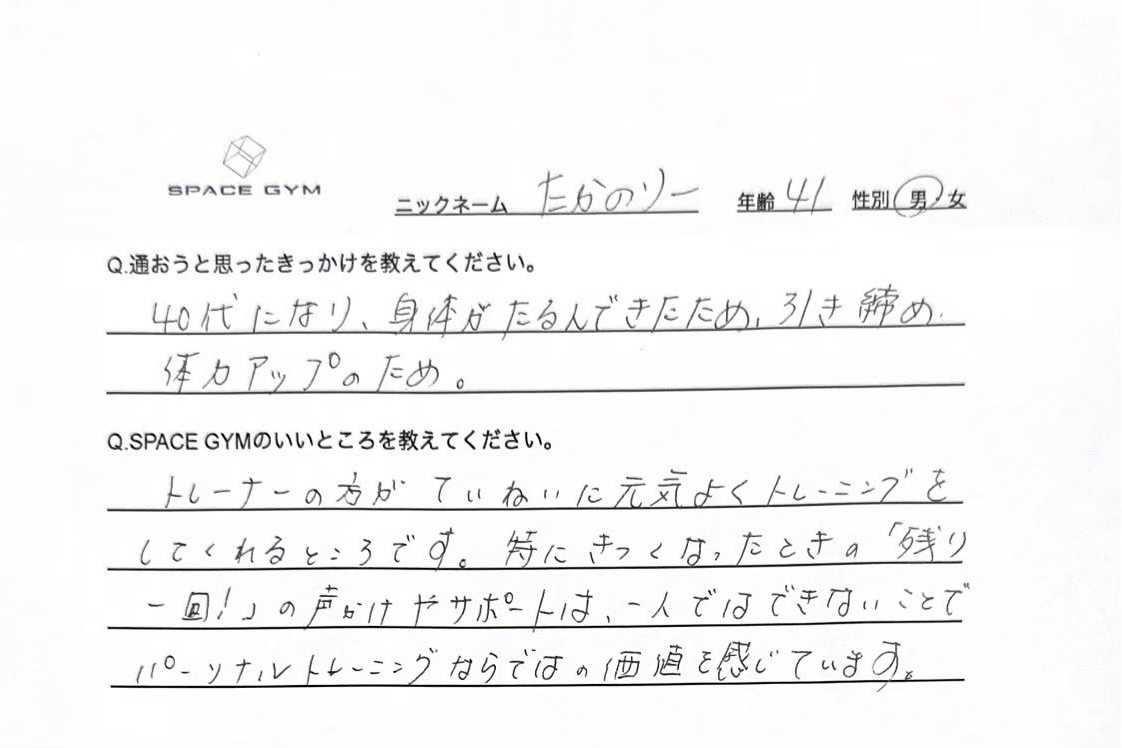 SPACE GYM
ニックネーム たかのりー 年齢 41 性別 男・女
Q.通おうと思ったきっかけを教えてください。
40代になり、身体がたるんできたため、引き締め、
体力アップのため。
Q.SPACE GYMのいいところを教えてください。
トレーナーの方がていねいに元気よくトレーニングを
してくれるところです。特にきつくなったときの「残り
一回!」の声かけやサポートは、一人ではできないことで
パーソナルトレーニングならではの価値を感じています。